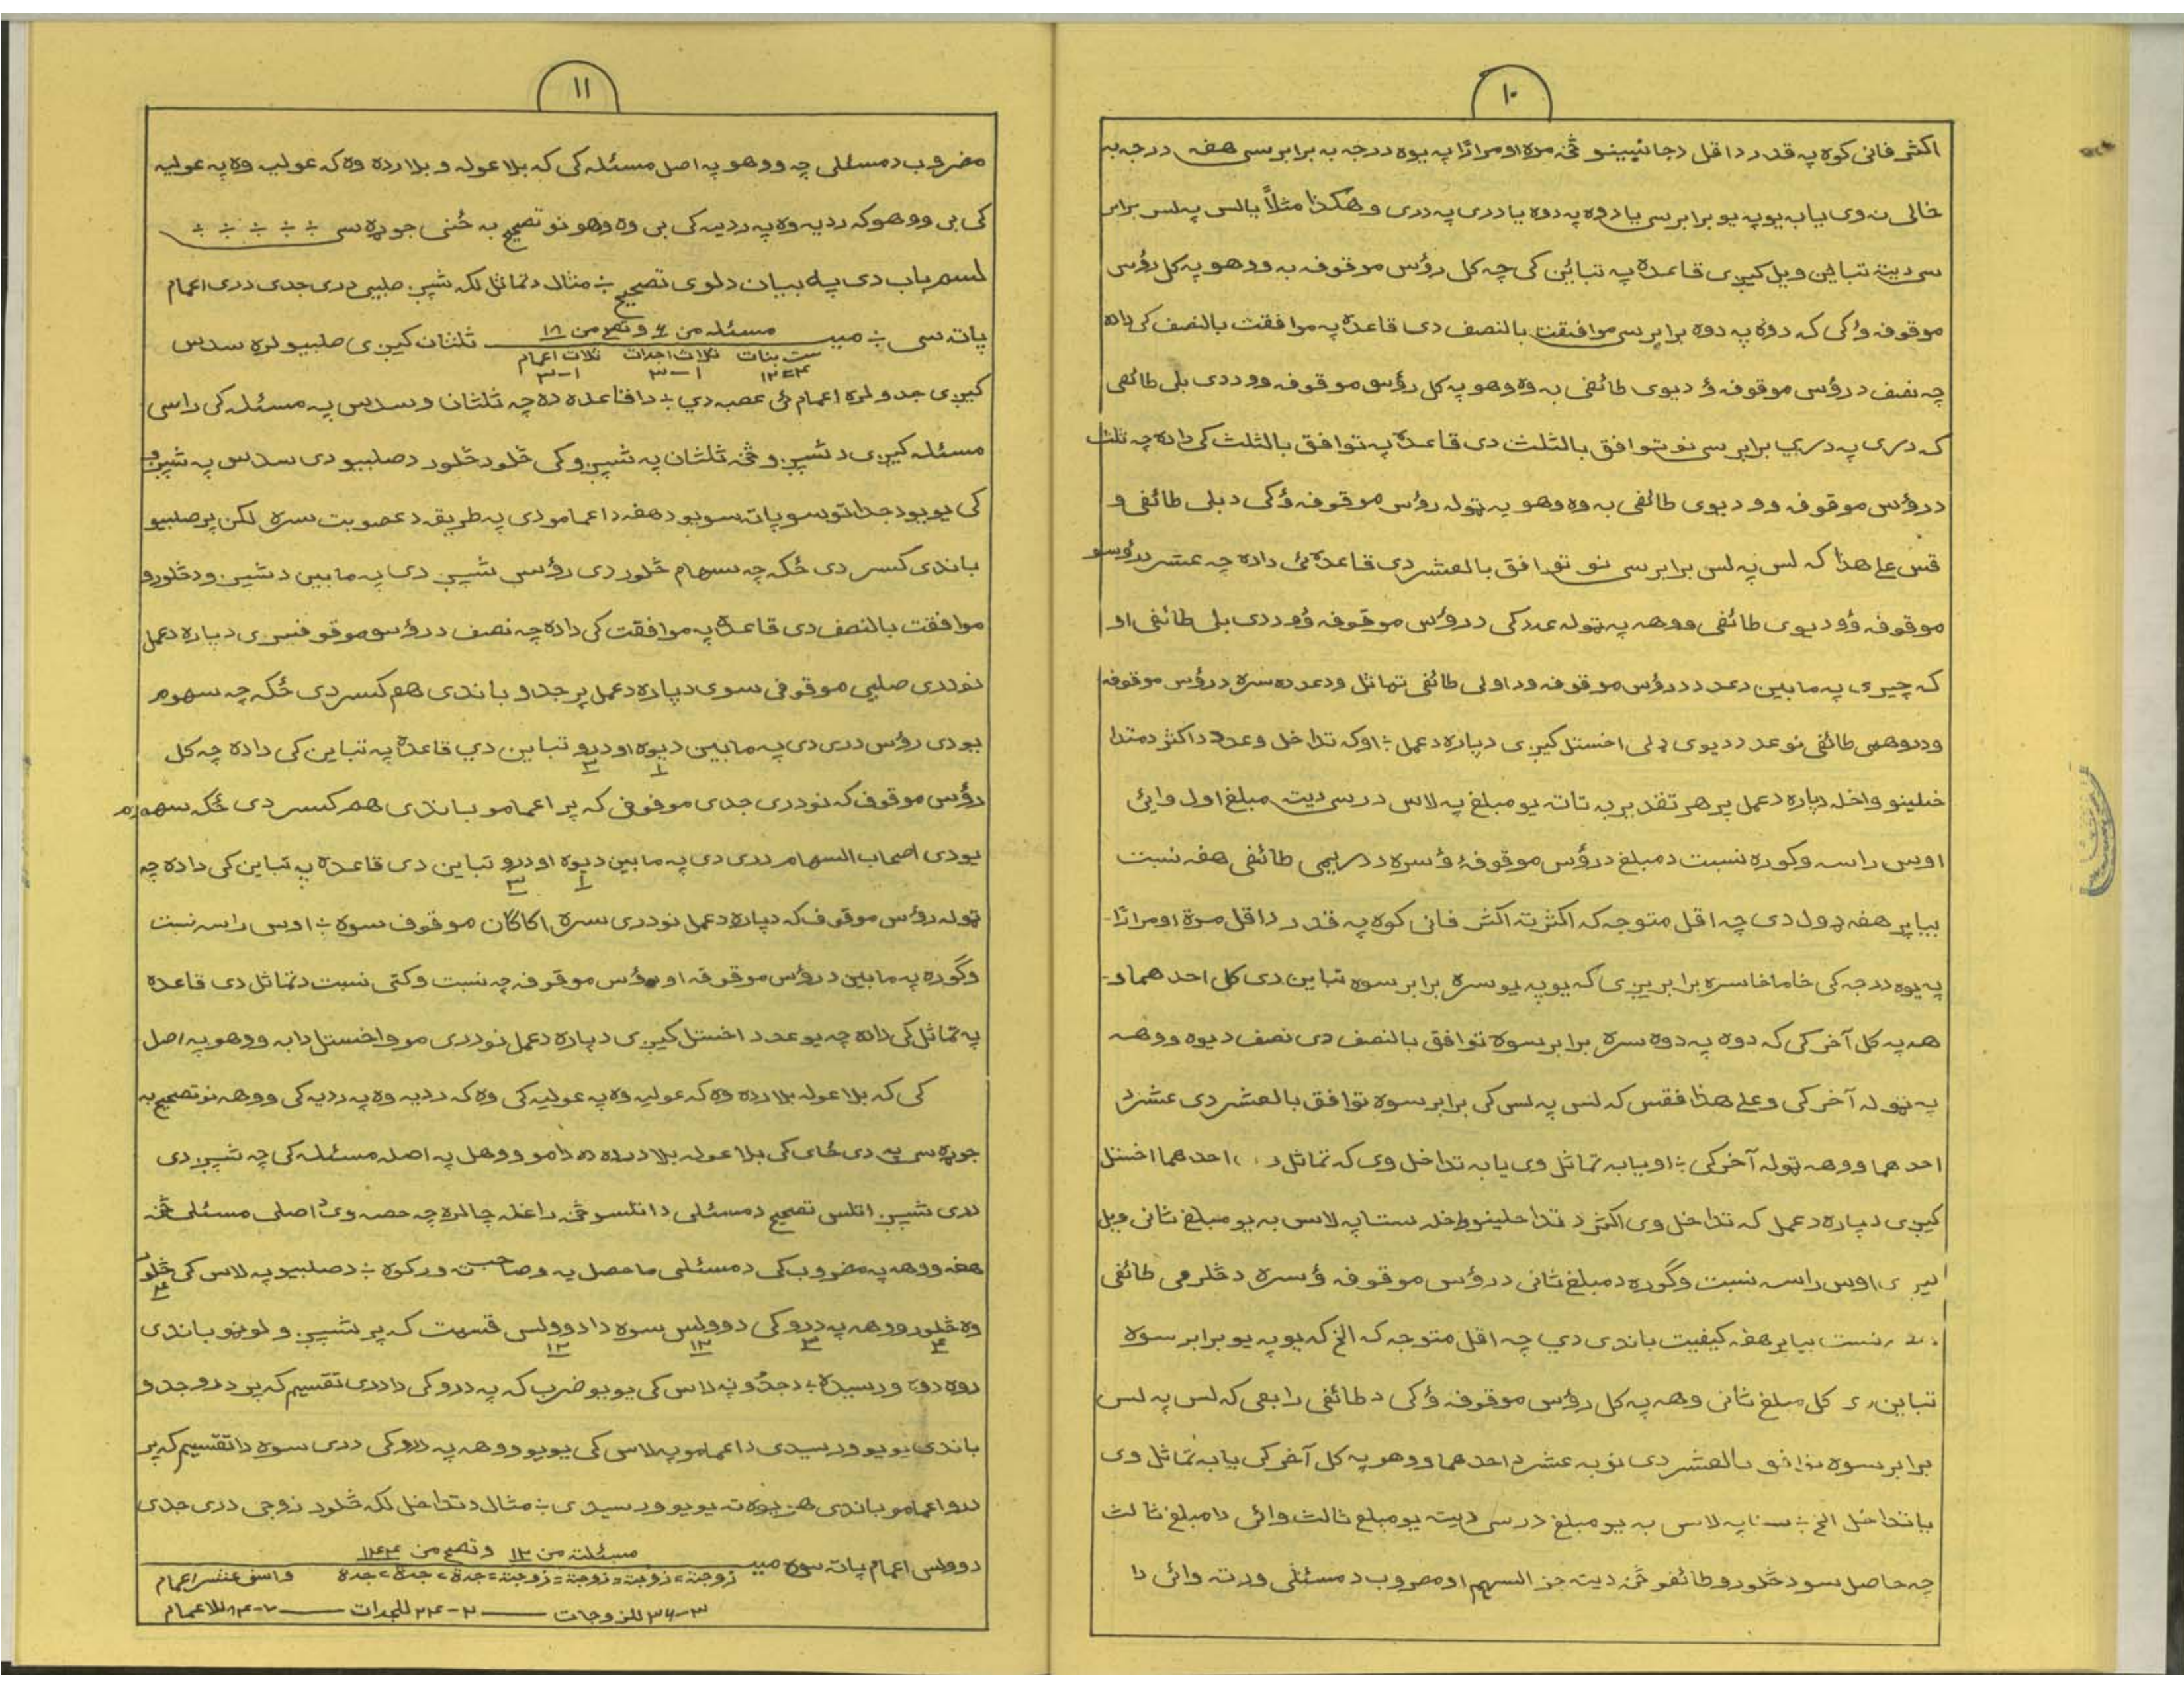 ۱۰
اکثر فانی کوه په قدر د اقل د جانبینو څخه مرة او مرارًا په یوه درجه به برابر سی هغه درجه به
خالی نه وی یا به یو په یو برابر سی یا دوه په دوه یا دری په دری و هکذا مثلاً یا لس په لس برابر
سی دیته تباین ویل کیږی قاعده په تباین کی چه کل رؤس موقوفه به ووهو په کل رؤس
موقوفه ؤ کی که دوه په دوه برابر سی موافقت بالنصف دی قاعده په موافقت بالنصف کی داده
چه نصف د رؤس موقوفه ؤ د یوی طائفی به ووهو په کل رؤس موقوفه وو د دی بلی طائفی
که دری په دری برابر سی نو توافق بالثلث دی قاعده په توافق بالثلث کی داده چه ثلث
د رؤس موقوفه وو د یوی طائفی به ووهو په ټوله رؤس موقوفه ؤ کی د بلی طائفی و
قس علے هذا که لس په لس برابر سی نو توافق بالعشر دی قاعده ئی داده چه عشر د رؤسو
موقوفه ؤو د یوی طائفی ووهه په ټوله عدد کی د رؤس موقوفه ؤو د دی بلی طائفی او
که چیری په مابین د عدد د رؤس موقوفه و د اولی طائفی تماثل و د عدده سره د رؤس موقوفه
و د دوهمی طائفی نو عدد د یوی ډلی اخستل کیږی دپاره د عمل ÷ او که تداخل و عدد د اکثر د متدا
خلینو واخله دپاره د عمل پر هر تقدیر به تاته یو مبلغ په لاس در سی دیته مبلغ اول وائی
اوس راسه وګوره نسبت د مبلغ د رؤس موقوفه ؤ سره د دریمی طائفی هغه نسبت
بیا پر هغه ډول دی چه اقل متوجه که اکثر ته اکثر فانی کوه په قدر د اقل مرة او مرارًا
په یوه درجه کی خاماخا سره برابریږی که یو په یو سره برابر سوه تباین دی کل احدهما و-
هه په کل آخر کی که دوه په دوه سره برابر سوه توافق بالنصف دی نصف د یوه ووهه
په ټوله آخر کی و علے هذا فقس که لس په لس کی برابر سوه توافق بالعشر دی عشر د
احدهما ووهه ټوله آخر کی ÷ او یا به تماثل وی یا به تداخل وی که تماثل احدهما اخستل
کیږی دپاره د عمل که تداخل وی اکثر د تداخلینو واخله ستا په لاس به یو مبلغ ثانی ویل
اوس راسه نسبت وګوره د مبلغ ثانی د رؤس موقوفه ؤ سره د څلرمی طائفی
نسبت بیا پر هغه کیفیت باندی دی چه اقل متوجه که الخ که یو په یو برابر سوه
تباین کل مبلغ ثانی وهه په کل رؤس موقوفه ؤ کی د طائفی رابعی که لس په لس
برابر سوه توافق بالعشر دی نو به عشر د احدهما ووهو په کل آخر کی یا به تماثل وی
یا تداخل الخ ÷ ستا په لاس به یو مبلغ در سی دیته یو مبلغ ثالث وائی دا مبلغ ثالث
چه حاصل سو د څلورو طائفو څخه دیته جز السهم او مضروب د مسئلی ورته وائی دا
۱۱
مضروب د مسئلی چه ووهو په اصل مسئله کی که بلا عوله و بلا رده وه که عولیه وه په عولیه
کی بی ووهو که ردیه وه په ردیه کی بی ووهو نو تصحیح به ځنی جوړه سی ÷ ÷ ÷ ÷ ÷
لسم باب دی په بیان د لوی تصحیح ÷ مثال د تماثل لکه شپږ صلبیی دری جدی دری اعمام
پاته سی ÷ میـــ مسئله من ۶ و تصح من ۱۸ ثلثان کیږی صلبیو لره سدس
ست بنات ثلاث اجدات ثلاث اعمام
۴=۱۲ ۱-۳ ۱-۳
کیږی جدو لره اعمام ئی عصبه دی ÷ دا قاعده ده چه ثلثان و سدس په مسئله کی راسی
مسئله کیږی د شپږو څخه ثلثان په شپږو کی څلور څلور د صلبیو دی سدس په شپږو
کی یو یو د جداتو سو پاته سو یو د هغه د اعمامو دی په طریقه د عصوبت سره لکن پر صلبیو
باندی کسر دی ځکه چه سهام څلور دی رؤس شپږ دی په مابین د شپږ و د څلورو
موافقت بالنصف دی قاعده په موافقت کی داده چه نصف د رؤسو موقوفیږی دپاره د عمل
نو دری صلبیی موقوفی سوی دپاره د عمل پر جدو باندی هم کسر دی ځکه چه سهوم
یو دی رؤس دری دی په مابین د یوه او درو تباین دی قاعده په تباین کی داده چه کل
۱ ۳
رؤس موقوف که نو دری جدی موقوفی که پر اعمامو باندی هم کسر دی ځکه سهوم
یو دی اصحاب السهام دری دی په مابین د یوه او درو تباین دی قاعده په تباین کی داده چه
۱ ۳
ټوله رؤس موقوف که دپاره د عمل نو دری سره اکاګان موقوف سوه ÷ اوس راسه نسبت
وګوره په مابین د رؤس موقوفه او رؤس موقوفه چه نسبت وکتی نسبت د تماثل دی قاعده
په تماثل کی داده چه یو عدد اخستل کیږی دپاره د عمل نو دری مو واخستل دا به ووهو په اصل
کی که بلا عوله بلا رده وه که عولیه وه په عولیه کی وه که ردیه وه په ردیه کی ووهه نو تصحیح به
جوړه سی په دی ځای کی بلا عوله بلا رده ده دا مو ووهل په اصله مسئله کی چه شپږ دی
دری شپږ اتلس تصحیح د مسئلی د اتلسو څخه راغله چا لره چه حصه وی د اصلی مسئلی څخه
هغه ووهه په مضروب کی د مسئلی ماحصل یه و صاحب ته ورکوه ÷ د صلبیو په لاس کی څلور
۴
وه څلور ووهه په درو کی دوولس سوه دا دوولس قسمت که پر شپږو لوڼو باندی
۴ ۳ ۱۲ ۱۲
دوه دوه ورسیده ÷ د جدو په لاس کی یو یو ضرب که په درو کی دا دری تقسیم که پر درو جدو
باندی یو یو ورسیدی د اعمامو په لاس کی یو یو ووهه په درو کی دری سوه دا تقسیم که پر
درو اعمامو باندی هر یوه ته یو یو ورسیدی ÷ مثال د تداخل لکه څلور زوجی دری جدی
دوولس اعمام پاته سوه میـــ مسئلة من ۱۲ و تصح من ۱۴۴
زوجة = زوجة = زوجة = زوجة = جدة = جدة = جدة و اسنی عشر اعمام
۳-۳۶ للزوجات ـــ ۲-۲۴ للجدات ـــ ۷-۸۴ للاعمام